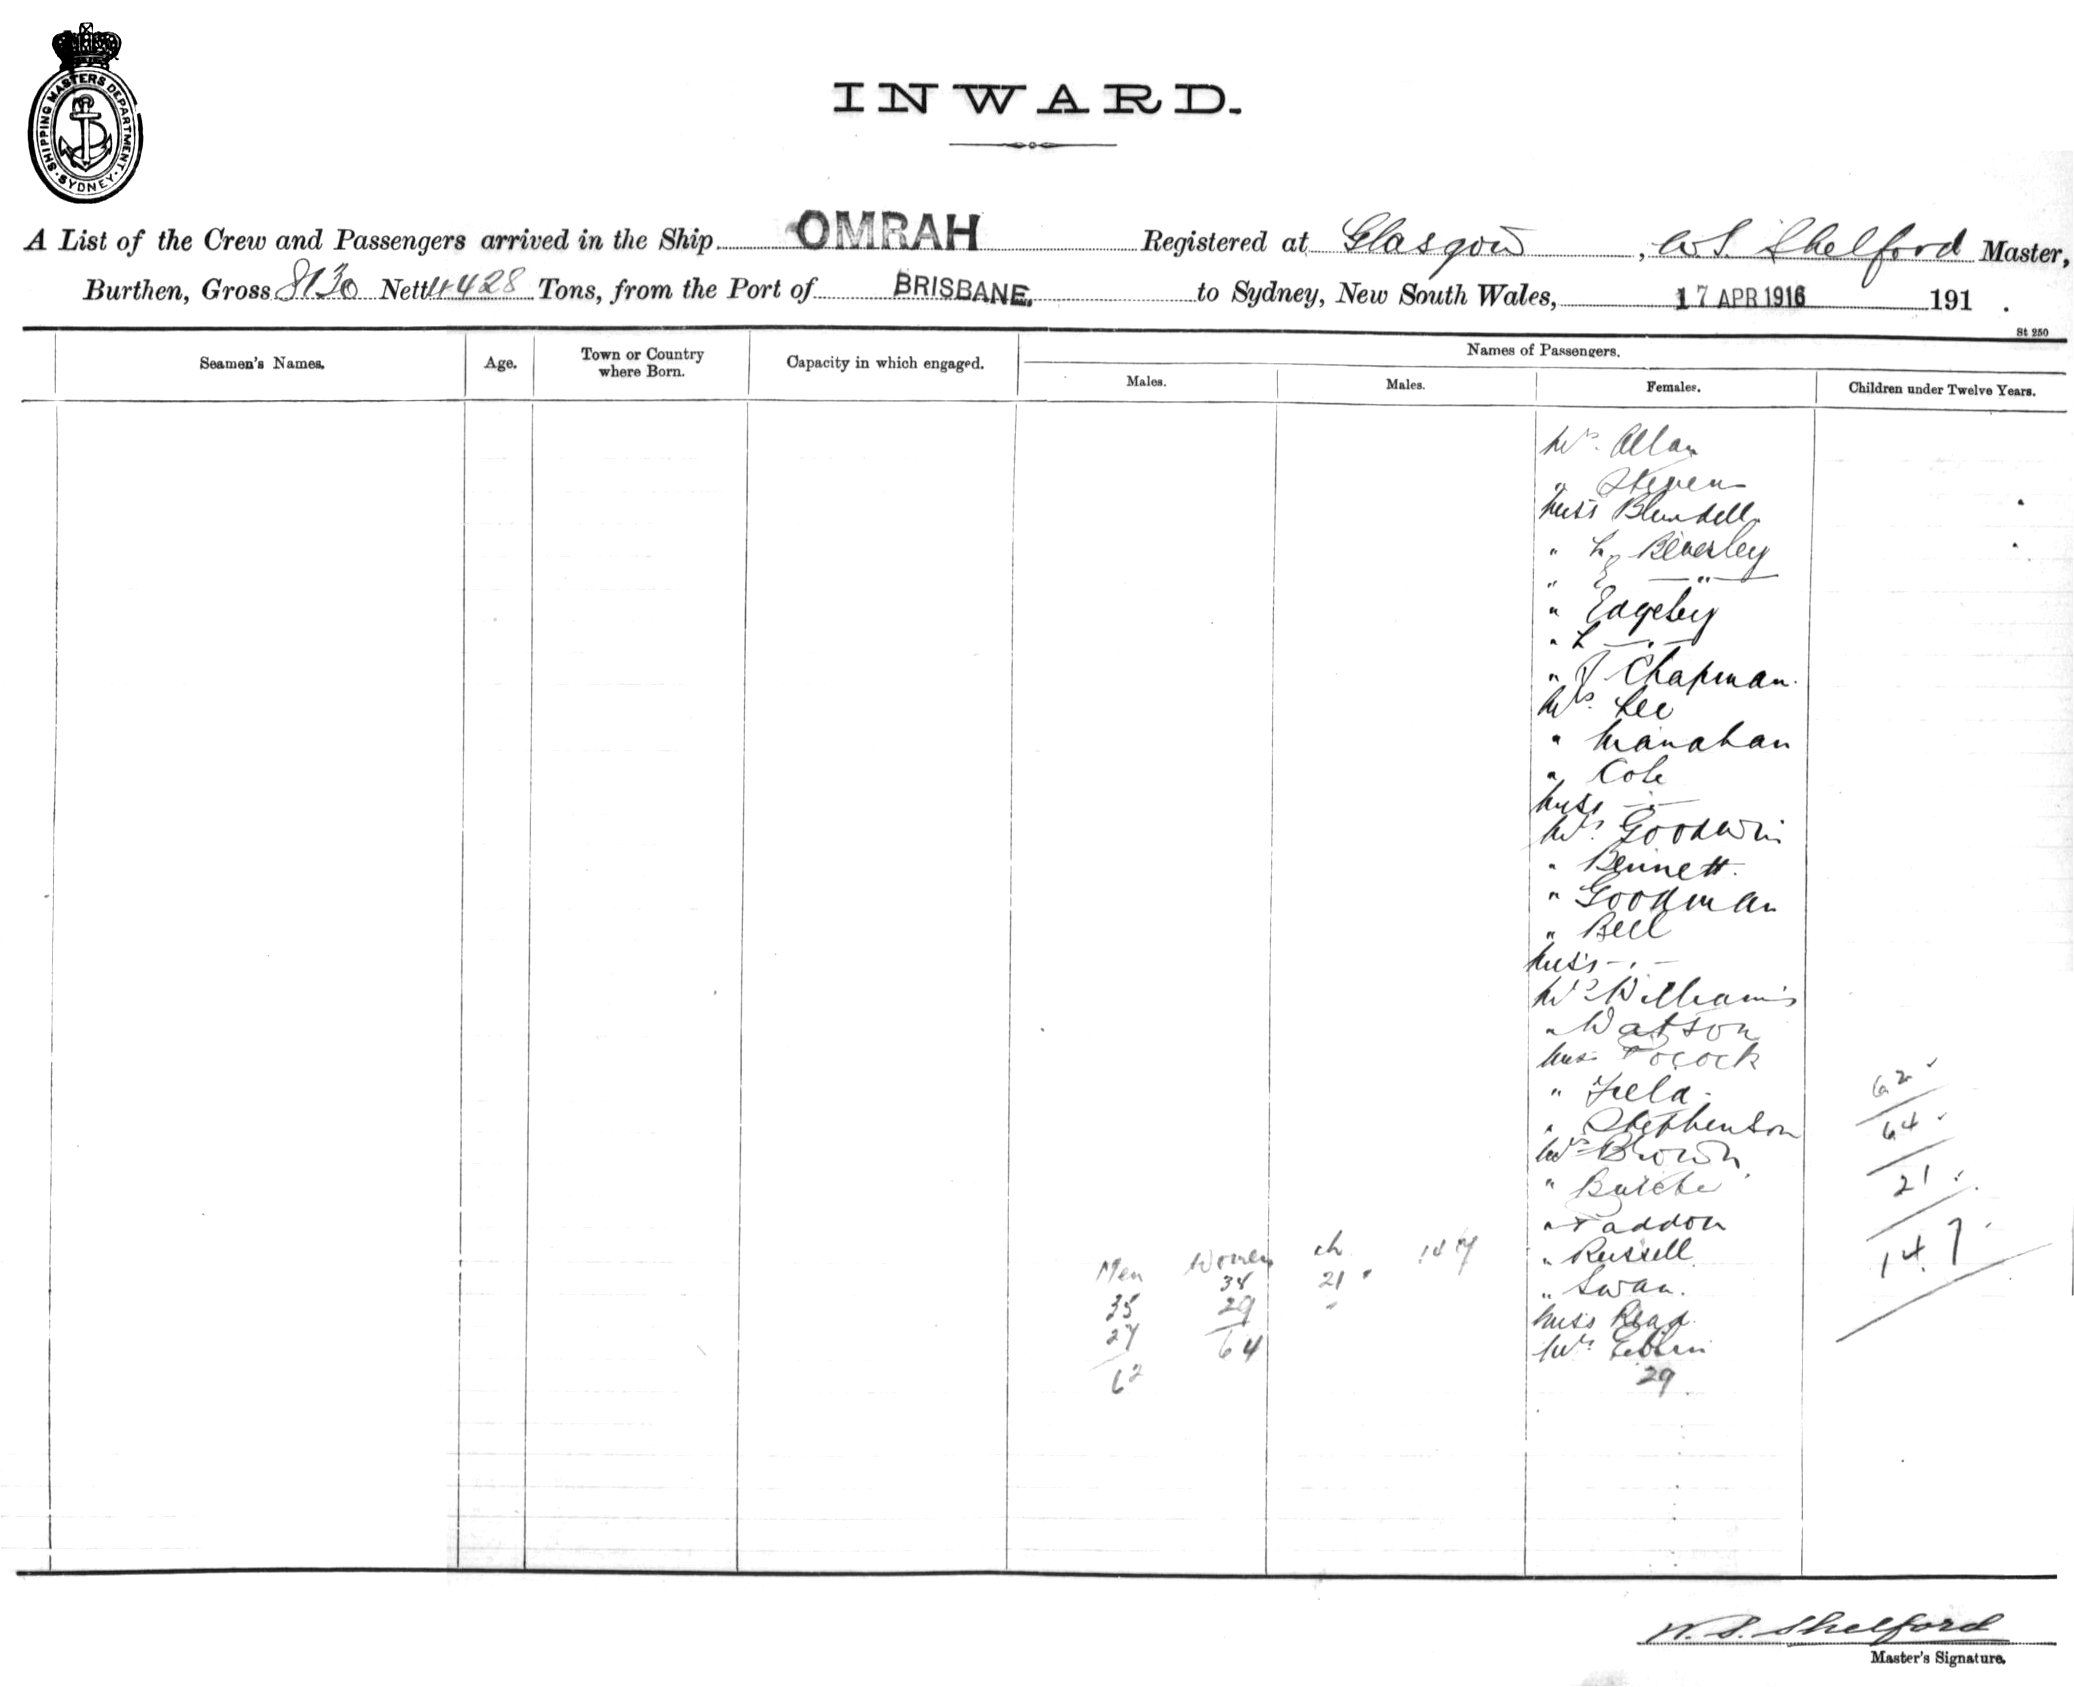 SHIPPING MASTERS DEPARTMENT · SYDNEY ·
INWARD.
A List of the Crew and Passengers arrived in the Ship OMRAH Registered at Glasgow, W.S. Shelford Master,
Burthen, Gross 8130 Nett 4428 Tons, from the Port of BRISBANE. to Sydney, New South Wales, 17 APR 1916 191 .
St 250
Seamen's Names. Age. Town or Country where Born. Capacity in which engaged. Names of Passengers.
Males. Males. Females. Children under Twelve Years.
Mrs. Allan
" Steven
Miss Blundell
" L Beverley
" E — " —
" Edgeley
" L — " —
" Chapman.
Mrs. Lee
" Manahan
" Cole
Miss — " —
Mrs. Goodwin
" Bennett
" Goodman
" Bell
Miss — " —
Mrs Williams
" Watson
Miss Pocock
" Field
" Stephenson
Mrs Brown
"
" Paddon
" Russell
" Swan.
Miss Read
Mrs
29
62
64
21
147
Men Women ch 147
35 21
35 29
27 64
62
W. S. Shelford
Master's Signature.